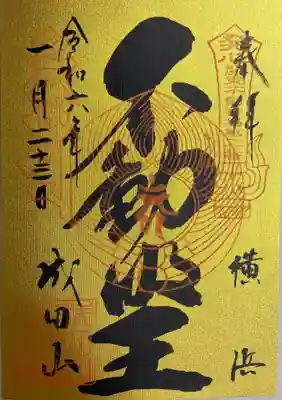 奉拝
横浜
不動明王
令和六年
一月二十三日
成田山